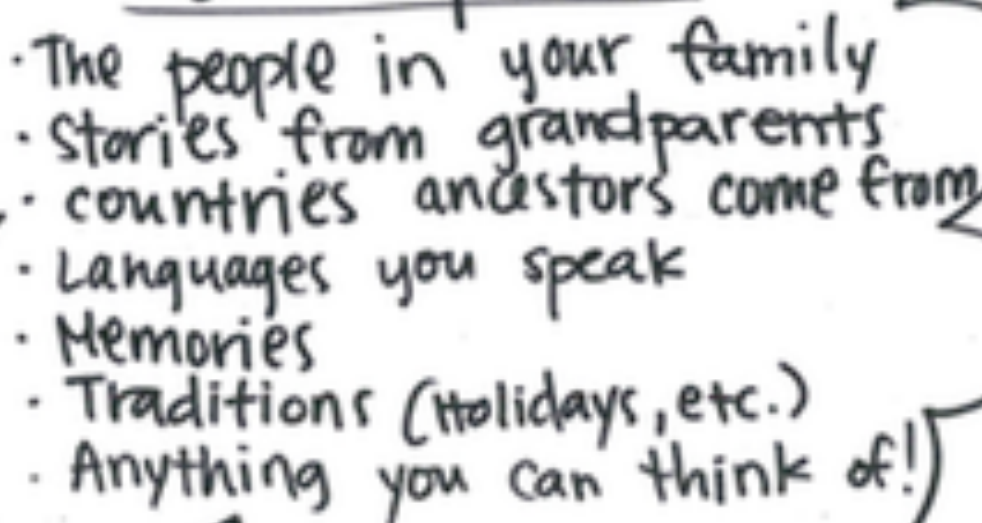 · The people in your family
· Stories from grandparents
· countries ancestors come from
· Languages you speak
· Memories
· Traditions (Holidays, etc.)
· Anything you can think of!